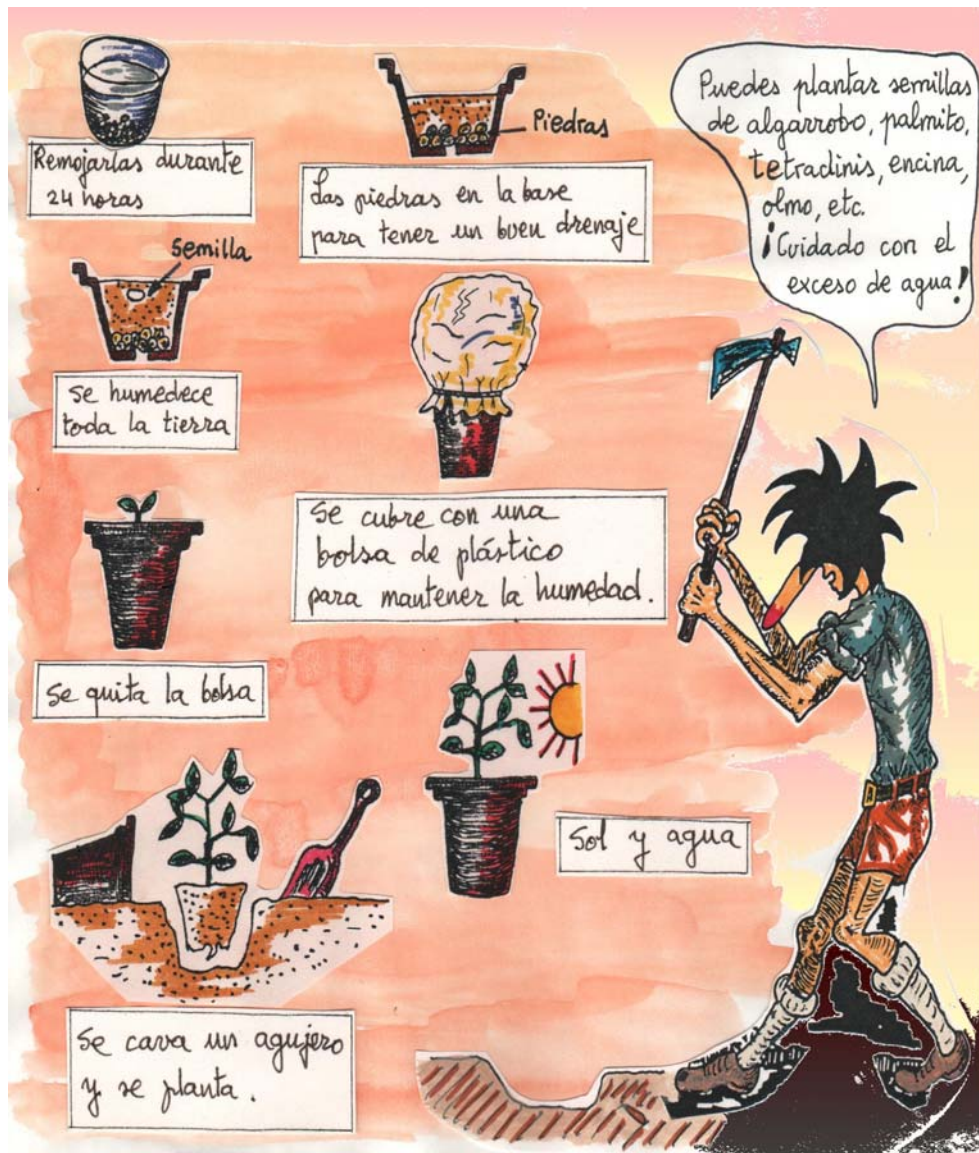 Remojarlas durante
24 horas
Piedras
Las piedras en la base
para tener un buen drenaje
Semilla
Se humedece
toda la tierra
Se cubre con una
bolsa de plástico
para mantener la humedad.
Se quita la bolsa
Sol y agua
Se cava un agujero
y se planta.
Puedes plantar semillas
de algarrobo, palmito,
tetraclinis, encina,
olmo, etc.
¡Cuidado con el
exceso de agua!